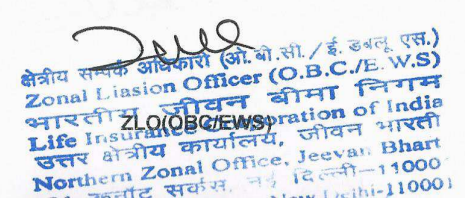 क्षेत्रीय सम्पर्क अधिकारी (ओ.बी.सी./ई.डबलू एस.)
Zonal Liasion Officer (O.B.C./E.W.S)
भारतीय जीवन बीमा निगम
ZLO(OBC/EWS)
Life Insurance Corporation of India
उत्तर क्षेत्रीय कार्यालय, जीवन भारती
Northern Zonal Office, Jeevan Bhart
कनॉट सर्कस, नई दिल्ली-11000
New Delhi-110001